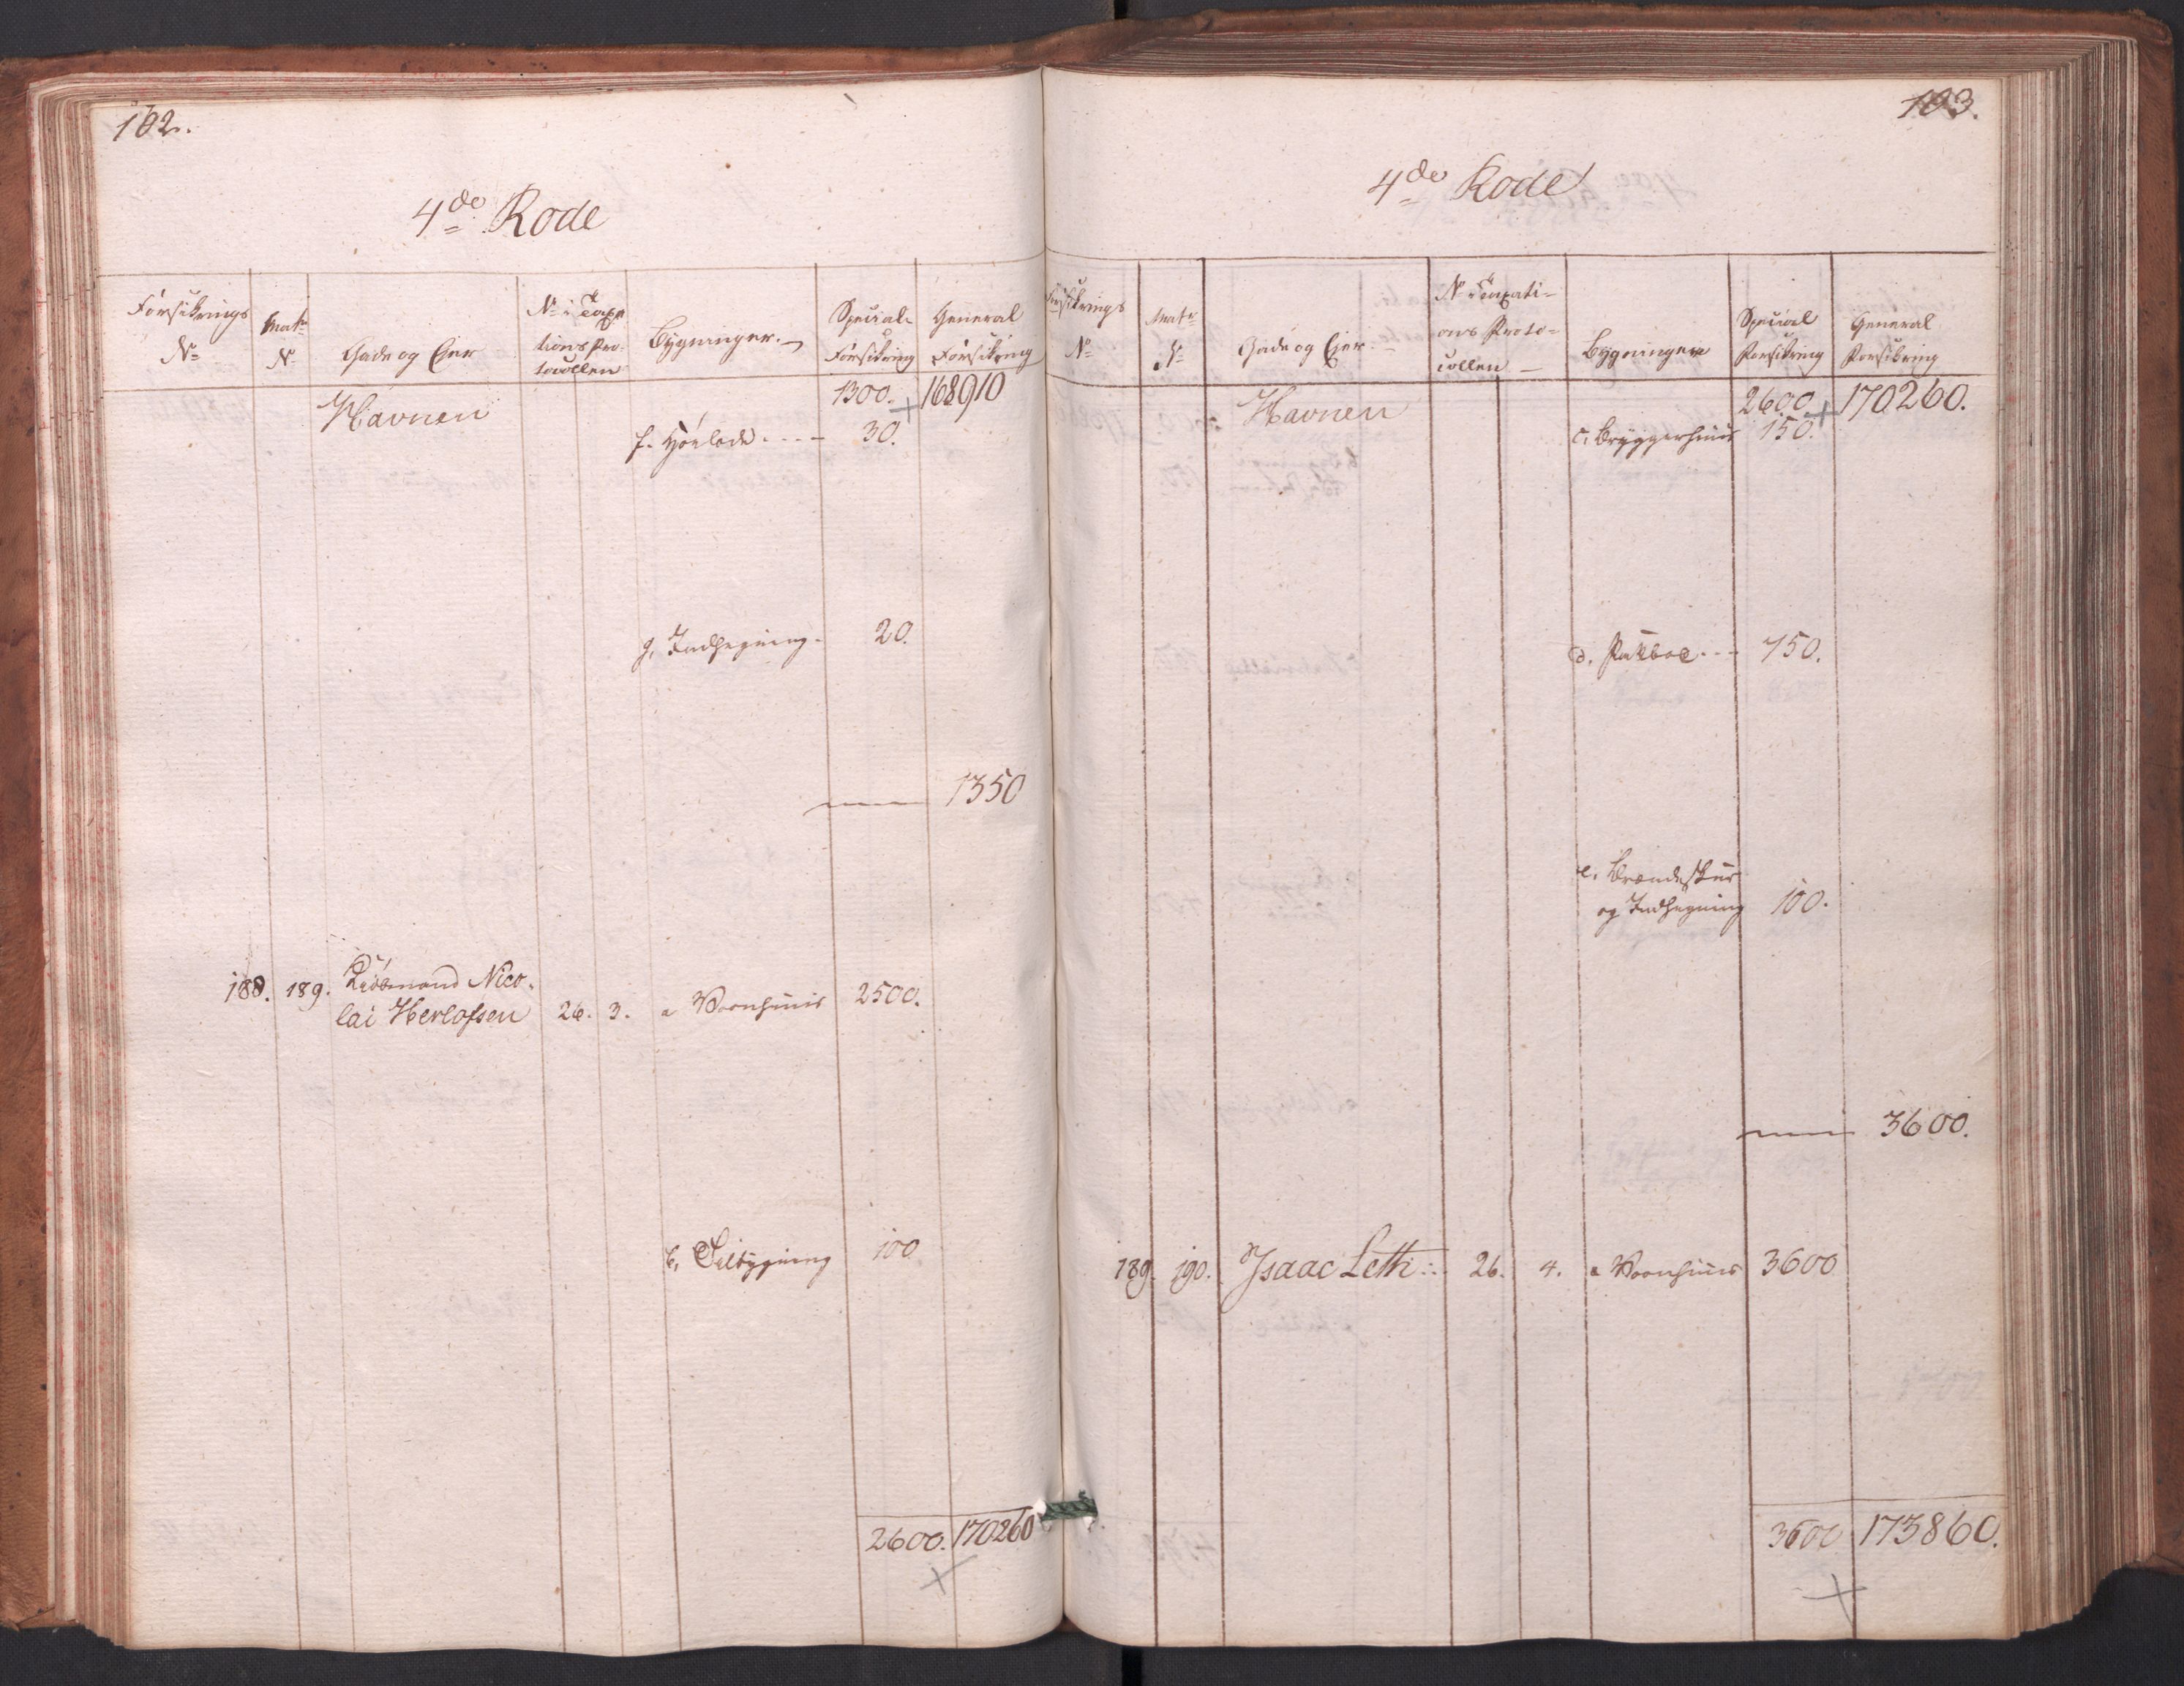 102.
4de Rode
Forsikrings No
Matr No
Gade og Eier
No i Taxa-
tions Pro-
tocollen
Bygninger.
Special Forsikring
General Forsikring
Havnen
1300. 168910
f. Høelade 30.
g. Indhegning 20.
1350
188. 189. Kiøbmand Nico-
lai Herlofsen 26. 3. a Vaanhuus 2500.
b. Tilbygning 100
2600. 170260
103.
4de Rode
Forsikrings No
Matr No
Gade og Eier
No i Taxati-
ons Proto-
collen
Bygninger
Special Forsikring
General Forsikring
Havnen
2600 170260.
c. Bryggerhuus 150.
d. Pakboe 750.
e. Brændeskuur
og Indhegning 100.
3600.
189. 190. Isaac Leth 26. 4. a Vaanhuus 3600
3600 173860.